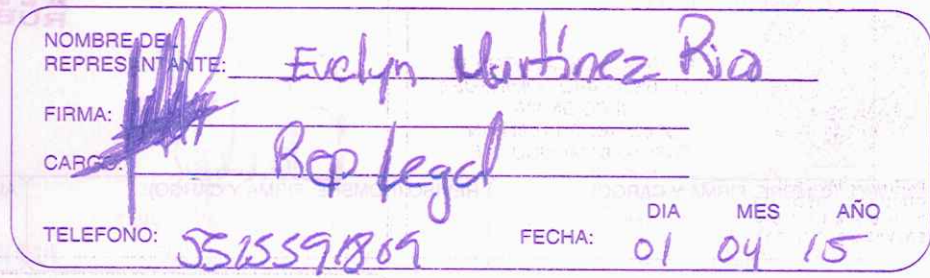 NOMBRE DEL
REPRESENTANTE: Evelyn Martínez Rico
FIRMA:
CARGO: Rep Legal
DIA MES AÑO
TELEFONO: 5525591809 FECHA: 01 04 15